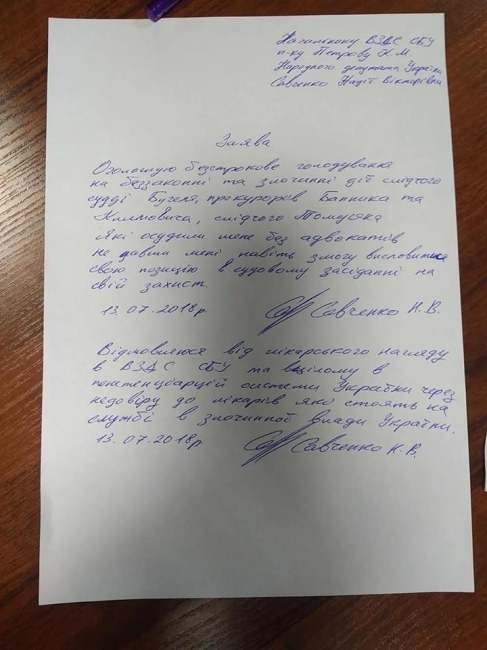 Начальнику ВЗДС СБУ
п-ку Петрову К.М.
Народного депутата України
Савченко Надії Вікторівни
Заява
Оголошую безстрокове голодування
на беззаконні та злочинні дії слідчого
судді Бугеля, прокурорів Банника та
Климовича, слідчого Томусяка
які осудили мене без адвокатів
не давши мені навіть змогу висловити
свою позицію в судовому засіданні на
свій захист.
13.07.2018р. Савченко Н.В.
Відмовляюся від лікарського нагляду
в ВЗДС СБУ та вцілому в
пенітенціарній системи України через
недовіру до лікарів які стоять на
службі в злочинної влади України.
13.07.2018р. Савченко Н.В.